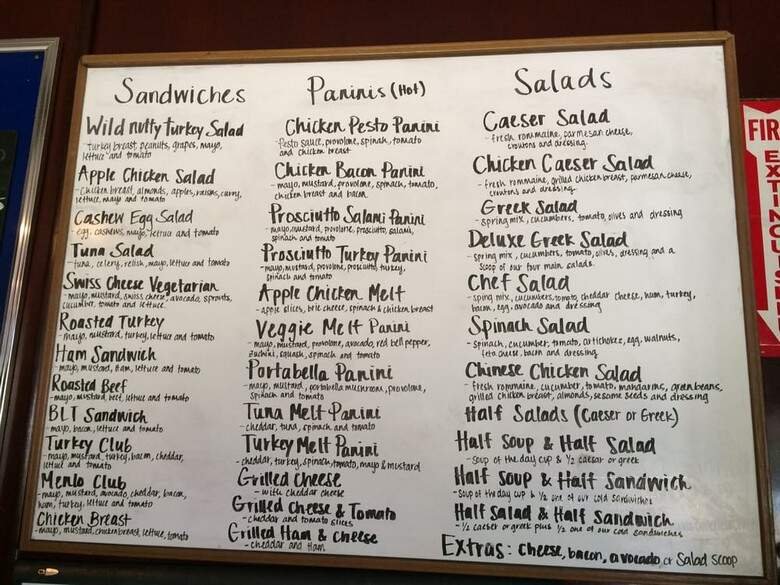 Sandwiches
Wild nutty Turkey Salad
- turkey breast, peanuts, grapes, mayo,
lettuce and tomato
Apple Chicken Salad
- chicken breast, almonds, apples, raisins, curry,
lettuce, mayo and tomato
Cashew Egg Salad
- egg, cashews, mayo, lettuce and tomato
Tuna Salad
- tuna, celery, relish, mayo, lettuce and tomato
Swiss Cheese Vegetarian
- mayo, mustard, swiss cheese, avocado, sprouts,
cucumber, tomato and lettuce.
Roasted Turkey
- mayo, mustard, turkey, lettuce and tomato
Ham Sandwich
- mayo, mustard, ham, lettuce and tomato
Roasted Beef
- mayo, mustard, beef, lettuce and tomato
BLT Sandwich
- mayo, bacon, lettuce and tomato
Turkey Club
- mayo, mustard, turkey, bacon, cheddar,
lettuce and tomato
Menlo Club
- mayo, mustard, avocado, cheddar, bacon,
ham, turkey, lettuce and tomato
Chicken Breast
- mayo, mustard, chicken breast, lettuce, tomato
Paninis (Hot)
Chicken Pesto Panini
- pesto sauce, provolone, spinah, tomato
and chicken breast
Chicken Bacon Panini
- mayo, mustard, provolone, spinach, tomato,
chicken breast and bacon.
Prosciutto Salami Panini
- mayo, mustard, provolone, prosciutto, salami,
spinach and tomato
Prosciutto Turkey Panini
- mayo, mustard, provolone, prosciutto, turkey,
spinach and tomato
Apple Chicken Melt
- apple slices, brie cheese, spinach & chicken breast
Veggie Melt Panini
- mayo, mustard, provolone, avocado, red bell pepper,
zuchini, squash, spinach and tomato
Portabella Panini
- mayo, mustard, portabella mushrooms, provolone,
spinach and tomato
Tuna Melt Panini
- cheddar, tuna, spinach and tomato
Turkey Melt Panini
- cheddar, turkey, spinach, tomato, mayo & mustard
Grilled Cheese
- with cheddar cheese
Grilled Cheese & Tomato
- cheddar and tomato slices
Grilled Ham & Cheese
- cheddar and ham
Salads
Caeser Salad
- fresh rommaine, parmesan cheese,
croutons and dressing.
Chicken Caeser Salad
- fresh rommaine, grilled chicken breast, parmesan cheese,
croutons and dressing
Greek Salad
- spring mix, cucumbers, tomato, olives and dressing
Deluxe Greek Salad
- spring mix, cucumbers, tomato, olives, dressing and a
scoop of our four main salads.
Chef Salad
- spring mix, cucumbers, tomato, cheddar cheese, ham, turkey,
bacon, egg, avocado and dressing
Spinach Salad
- spinach, cucumber, tomato, artichokez, egg, walnuts,
feta cheese, bacon and dressing.
Chinese Chicken Salad
- fresh rommaine, cucumber, tomato, mandarins, green beans,
grilled chicken breast, almonds, sesame seeds and dressing
Half Salads (Caeser or Greek)
Half Soup & Half Salad
- soup of the day cup & ½ caesar or greek
Half Soup & Half Sandwich
- soup of the day cup & ½ one of our cold sandwiches
Half Salad & Half Sandwich
- ½ caeser or greek plus ½ one of our cold sandwiches
Extras: cheese, bacon, avocado, or Salad scoop
FIR
EXTINGUISH